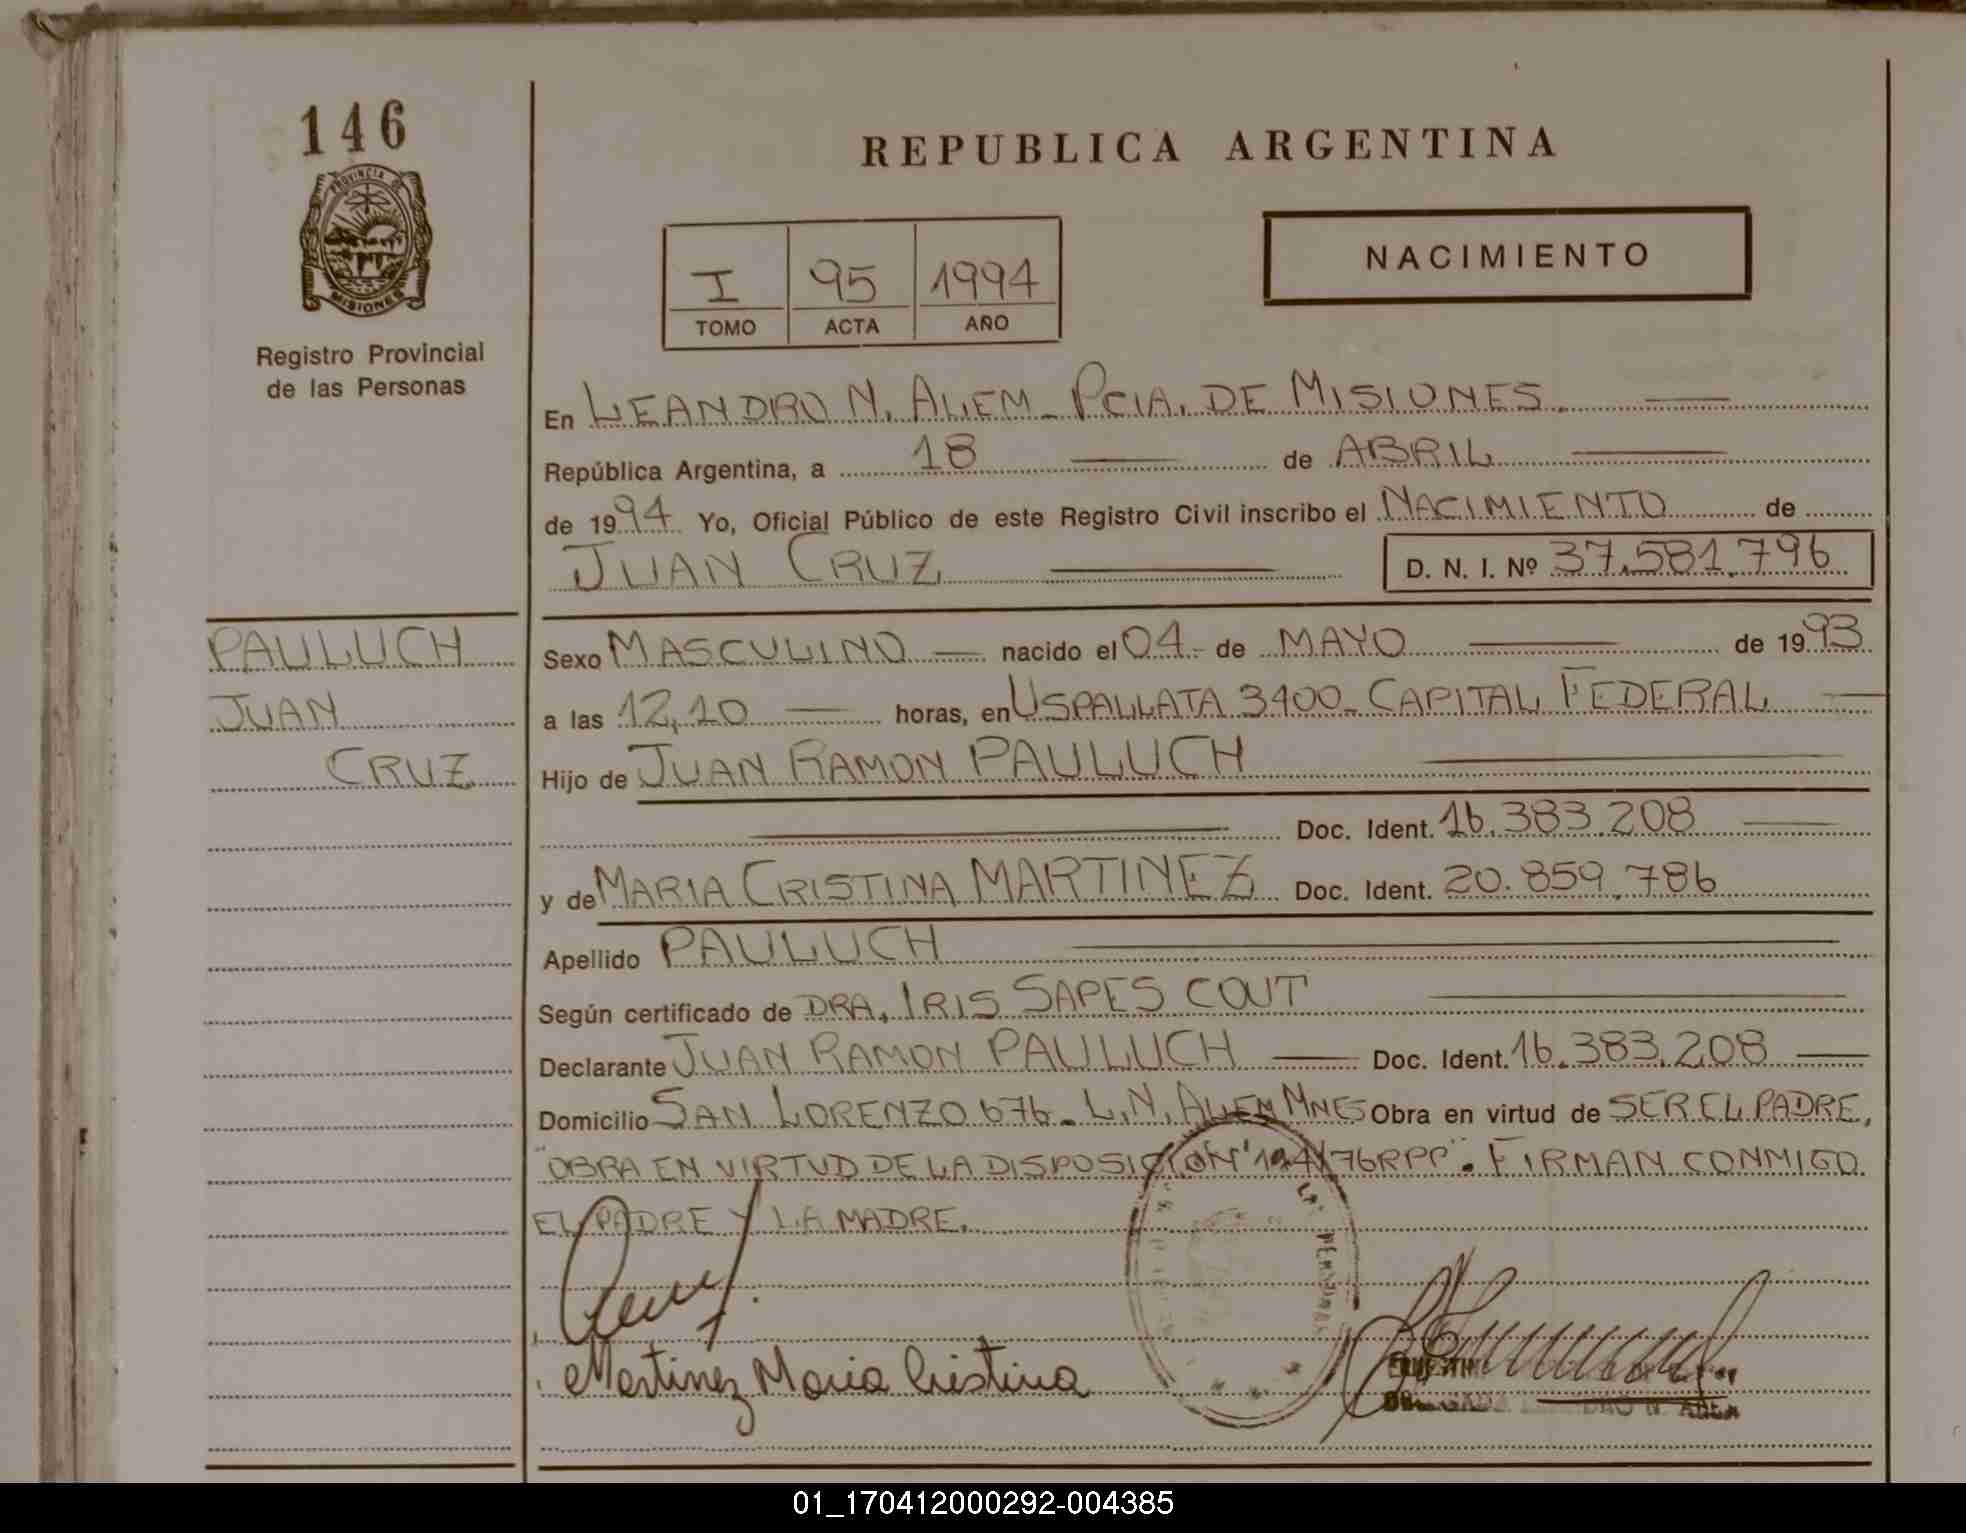 146
PROVINCIA DE
MISIONES
Registro Provincial
de las Personas
REPUBLICA ARGENTINA
I 95 1994
TOMO ACTA AÑO
NACIMIENTO
En LEANDRO N. ALEM - PCIA. DE MISIONES.
República Argentina, a 18 de ABRIL
de 1994 Yo, Oficial Público de este Registro Civil inscribo el NACIMIENTO de
JUAN CRUZ D. N. I. Nº 37.581.796
PAULUCH
JUAN
CRUZ
Sexo MASCULINO nacido el 04 de MAYO de 1993
a las 12,10 horas, en USPALLATA 3400 - CAPITAL FEDERAL
Hijo de JUAN RAMON PAULUCH
Doc. Ident. 16.383.208
y de MARIA CRISTINA MARTINEZ Doc. Ident. 20.859.786
Apellido PAULUCH
Según certificado de DRA. IRIS SAPES COUT
Declarante JUAN RAMON PAULUCH Doc. Ident. 16.383.208
Domicilio SAN LORENZO 676 - L.N. ALEM MNES Obra en virtud de SER EL PADRE,
"OBRA EN VIRTUD DE LA DISPOSICION 194/76RPP". FIRMAN CONMIGO
EL PADRE Y LA MADRE.
Martinez Maria Cristina
01_170412000292-004385